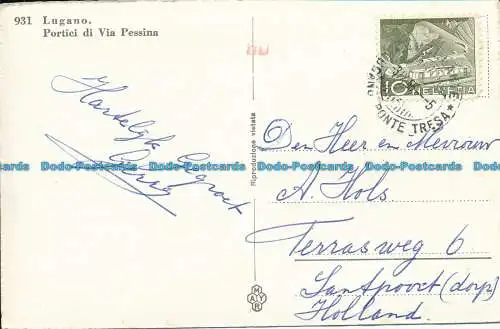 931 Lugano.
Portici di Via Pessina
Hartelijk
gegroet
Riproduzione vietata
MAYR
10 HELVETIA
PONTE TRESA
Den Heer en Mevrouw
A. Hols
Terrasweg 6
Santpoort (dorp)
Holland.
Dodo-Postcards Dodo-Postcards Dodo-Postcards Dodo-Postcards Dodo-Postcards